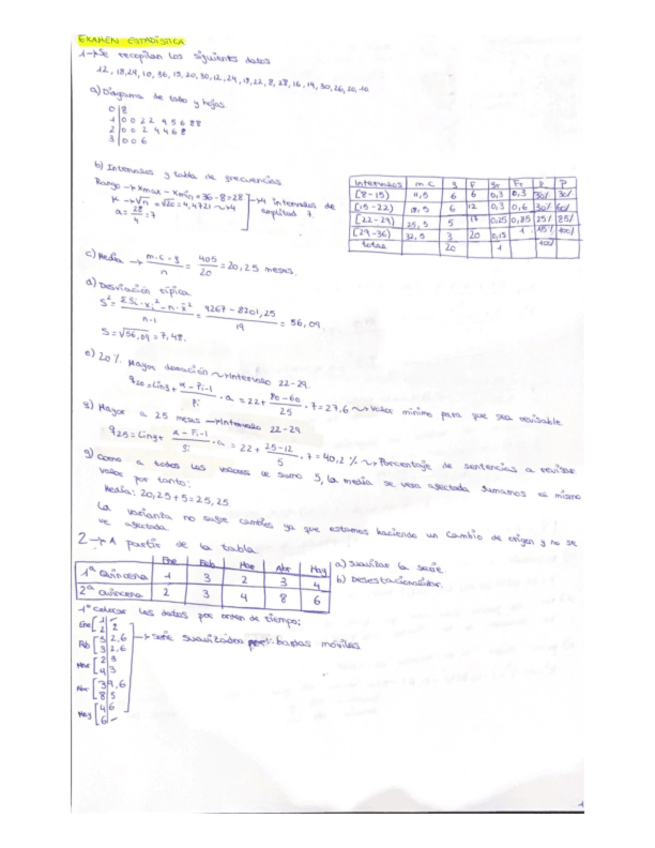 EXAMEN ESTADÍSTICA
1→Se recopilan los siguientes datos
12, 18, 24, 10, 36, 15, 20, 30, 12, 24, 18, 22, 8, 28, 16, 14, 30, 26, 20, 10
a) Diagrama de tallo y hojas
0|8
1|0 0 2 2 4 5 6 8 8
2|0 0 2 4 4 6 8
3|0 0 6
b) Intervalos y tabla de frecuencias
Rango → xmax - xmin = 36-8=28
K → √n = √20 = 4,4721 ~ 4
a = 28/4 = 7
→ 4 intervalos de amplitud 7.
Intervalos m.c f F fr Fr P P
[8-15) 11,5 6 6 0,3 0,3 30% 30%
[15-22) 18,5 6 12 0,3 0,6 30% 60%
[22-29) 25,5 5 17 0,25 0,85 25% 85%
[29-36) 32,5 3 20 0,15 1 15% 100%
total 20 1 100%
c) Media → m.c · f / n = 405/20 = 20,25 meses.
d) Desviación típica
S² = Σfi·xi² - n·x̄² / n-1 = 9267 - 8201,25 / 19 = 56,09
S = √56,09 = 7,48.
e) 20%. Mayor duración → Intervalo 22-29.
= 22 + 80-60/25 · 7 = 27,6 → valor mínimo para que sea revisable
8) Mayor a 25 meses → Intervalo 22-29
= 22 + 25-12/5 · 7 = 40,2 % → Porcentaje de sentencias a revisar
g) Como a todos los valores se suma 5, la media se vera afectada sumamos el mismo
valor por tanto:
Media: 20,25 + 5 = 25,25
La varianza no sufre cambios ya que estamos haciendo un cambio de origen y no se
ve afectada.
2→ A partir de la tabla
Ene Feb Mar Abr May
1ª Quincena 1 3 2 3 4
2ª Quincena 2 3 4 8 6
a) Suavizar la serie
b) Desestacionalizar.
1º Colocar los datos por orden de tiempo;
Ene 1 -
2 2
Feb 3 2,6
3 2,6
Mar 2 3
4 3
Abr 3 4,6
8 5
May 4 6
6 -
→ serie suavizada por bandas móviles
1